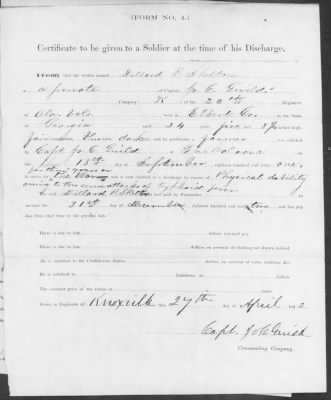 (FORM NO. 4.)
Certificate to be given to a Soldier at the time of his Discharge.
I CERTIFY that the within named Willard P. Skelton
a private of Captain J. C. Guild's
Company K of the 20th Regiment
of Ala. Vols born in Elbert Co.
Georgia aged 24 years five feet 8½ inches high,
fair complexion Blue eyes dark hair, and by profession a farmer
Capt J. C. Guild at Tuscaloosa
the 13th day of September eighteen hundred and sixty one,
to serve for the War and is now entitled to a discharge by reason of Physical disability
owing to the attack of Typhoid fever
The said Willard P. Skelton
include the 31st day of December, eighteen hundred and sixty two and has pay
due from that time to the present date
There is due to him dollars retained pay.
There is due to him dollars, on account of clothing not drawn in kind.
He is indebted to the Confederate States dollars, on account of extra clothing, &c.
He is indebted to laundress, at dollars.
The contract price of the ration at is cents.
Given in duplicate at Knoxville this 27th day of April 1862
Capt. J. C. Guild
Commanding Company.